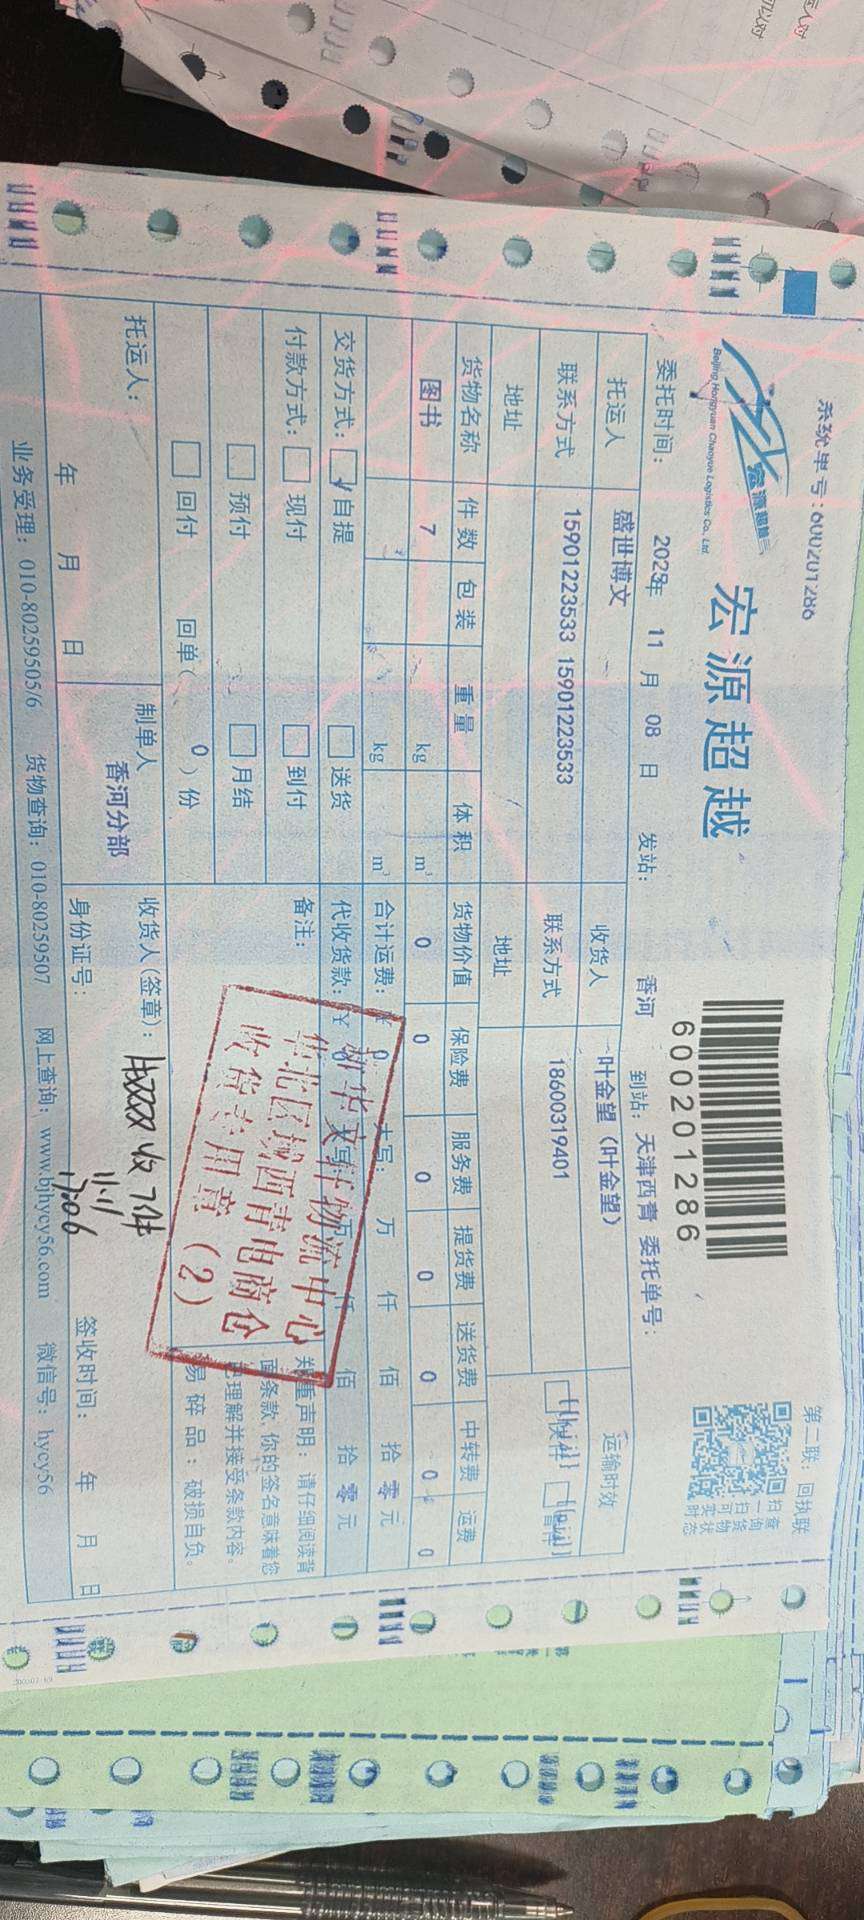 系统单号:600201286
第二联：回执联
宏源超越
Beijing Hongyuan Chaoyue Logistics Co., Ltd.
宏源超越
6000201286
扫一扫可买
查询货物状态
委托时间： 2023年 11 月 08 日 发站： 香河 到站：天津西青 委托单号：
托运人 盛世博文 收货人 叶金望（叶金望） 运输时效
联系方式 15901223533 15901223533 联系方式 18600319401
地址 地址
货物名称 件数 包装 重量 体积 货物价值 保险费 服务费 提货费 送货费 中转费 运费
图书 7 kg m³ 0 0 0 0 0 0 0
kg m³ 合计运费：¥ 0 大写： 万 仟 佰 拾 零 元
交货方式： ✓ 自提 送货 代收货款：¥ 0 大写： 万 仟 佰 拾 零 元
付款方式： 现付 到付 备注：
预付 月结
回付 回单（ 0 ）份
郑重声明：请仔细阅读背
面条款,你的签名意味着您
已理解并接受条款内容。
易碎品：破损自负。
新华文轩物流中心
华北区域西青电商仓
收货专用章（2）
托运人： 制单人 收货人(签章)： 收7件
香河分部
11.11
17:06
年 月 日 身份证号： 签收时间： 年 月 日
业务受理：010-80259505/6 货物查询：010-80259507 网上查询：www.bjhycy56.com 微信号：hycy56